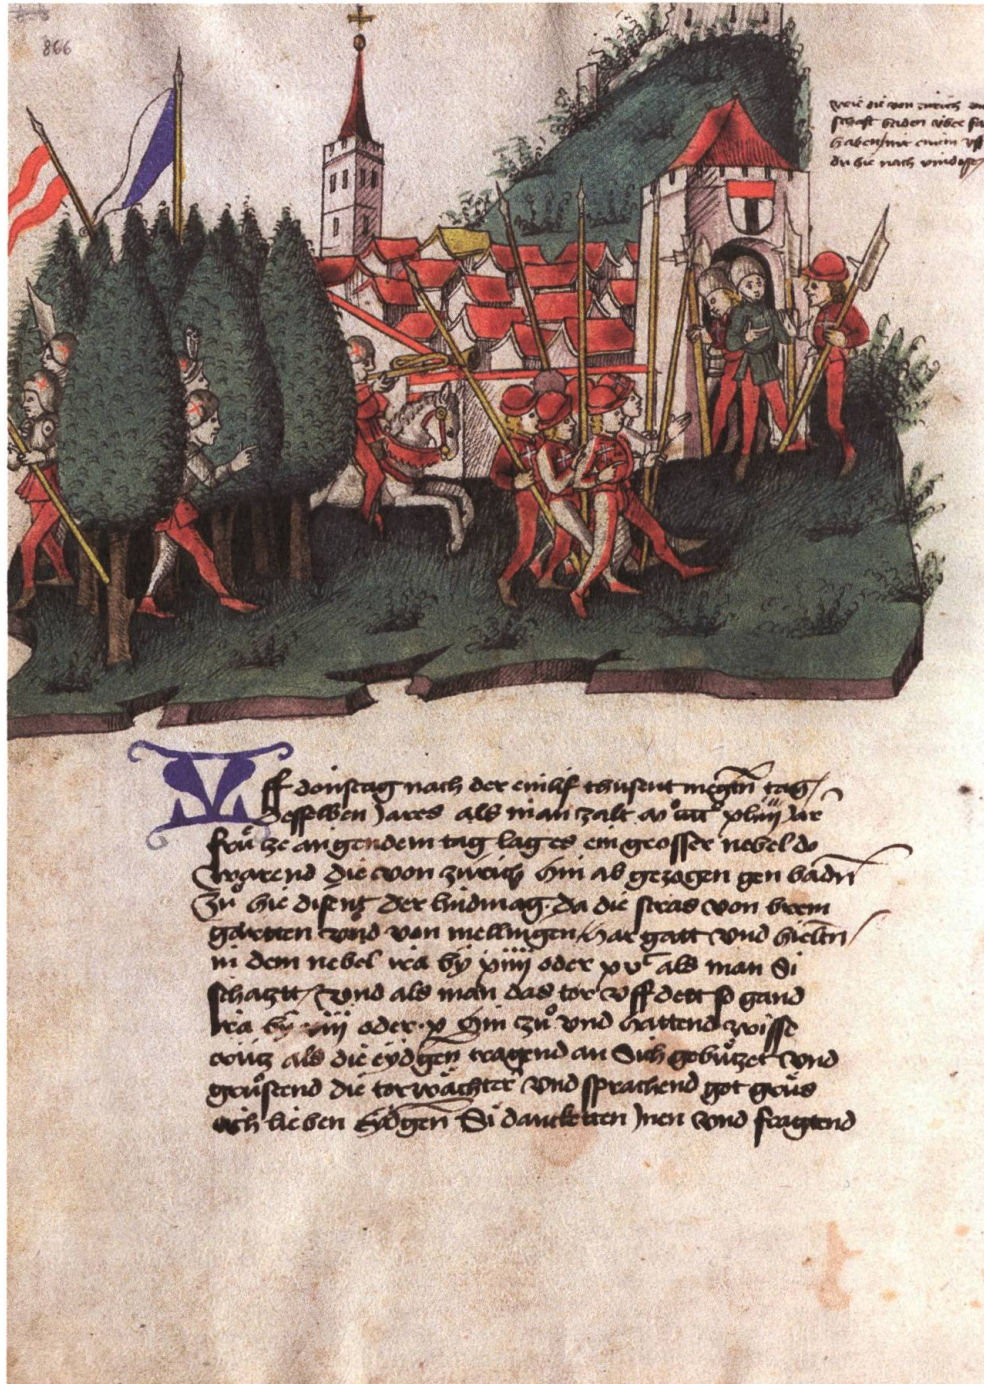 866
wie die von zürich
schaft baden über
haben mit einem uff
do sie nach
Vff donstag nach der einlif thusent megtn tag
Desselben Jares als man zalt xliiii Jar
frü ze angendem tag lag es ein grosser nebel do
warend die von zürich hin ab gezogen gen badn
Zů hie disent der lindmag da die stras von brem
gartten vnd von mellingen har gatt vnd hieltn
in dem nebel ira by xiiii oder xvc als man Si
schatzt vnd als man das tor vff dett so gand
ira by viii oder x hin zů vnd hattend wisse
crütz als die eydgen tragend an Sich gebützet vnd
grůstend die torwächter vnd sprachend got grüs
üch lieben Eydgen Si dancketten Jnen vnd fragtend